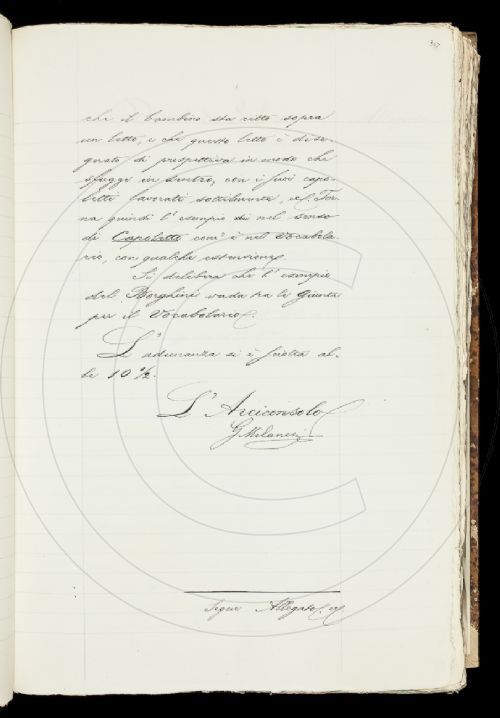 307
che il bambino sta ritto sopra
un letto, e che questo letto è dise-
gnato di prospettiva in modo che
sfugge in dentro, con i suoi capo-
letti lavorati sottilmente, ec. Tor-
na quindi l'esempio nel senso
di Capoletto com'è nel Vocabola-
rio, con qualche estensione.
Si delibera che l'esempio
del Borghini vada tra le Giunte
per il Vocabolario.
L'adunanza si è sciolta al-
le 10 1/2.
L'Arciconsolo
G. Milanesi
Segue Allegato